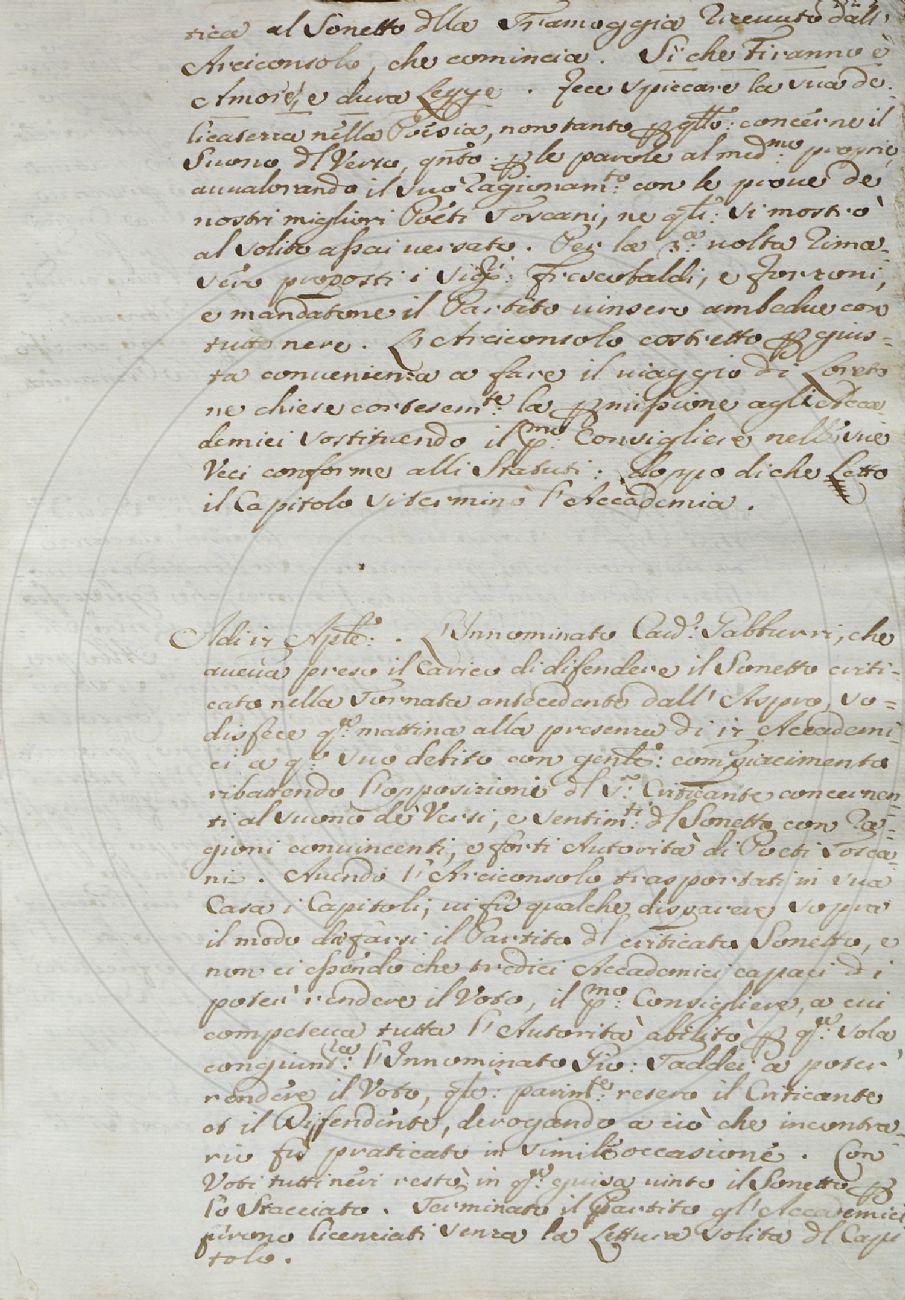 tica al Sonetto dlla Tramoggia riceuuto dall'
Arciconsolo, che comincia. Si che Tiranno è
Amore, e dura Legge. Fece spiccare la sua de=
licatezza nella Poesia, non tanto p qllo: concerne il
Suono dl Verso, qnto: p le parole al medmo proprie
auualorando il suo Ragionamto: con le proue de
nostri migliori Poeti Toscani, ne qli: si mostrò
al solito assai uersato. Per la 3a: uolta rima=
sero proposti i Sigri: Frescobaldi, e Forzoni,
e mandatone il Partito uinsero ambedue con
tutte nere. L'Arciconsolo costretto p gius=
ta conuenienza a fare il uiaggio di Loreto
ne chiese cortesemte: la pmissione agli Acca
demici sostituendo il pmo: Consigliere nelle sue
Veci conforme alli Statuti. Doppo di che Letto
il Capitolo si terminò l'Accademia.
Adi 17 Aple:. L'Innominato Caud: Gabburri, che
aueua preso il Carico di difendere il Sonetto criti=
cato nella Tornata antecedente dall'Aspro, so=
disfece qta mattina alla presenza di 17 Accademi=
ci a qo suo debito con gentlo: compiacimento
ribattendo l'opposizioni dl Sr: Criticante concernen=
ti al suono de Versi, e sentimti: dl Sonetto con Ra=
gioni conuincenti, e forti Autorità di Poeti Tosca=
ni. Auendo l'Arciconsolo trasportati in sua
Casa i Capitoli, ui fù qualche disparere sopra
il modo di farsi il Partito dl criticato Sonetto, e
non ci essendo che tredici Accademici capaci di
poter rendere il Voto, il pmo: Consigliere, a cui
competeua tutta l'Autorità abilitò p qta sola
congiunra: l'Innominato Gio: Taddei a poter
rendere il Voto, qle: parimte: resero il Criticante
et il Difendente, derogando a ciò che incontra=
rio fù praticato in simile occasione. Con
Voti tutti neri restò in qta guisa uinto il Sonetto p
lo Stacciato. Terminato il Partito gl'Accademici
furono licenziati senza la Lettura solita dl Capi
tolo.